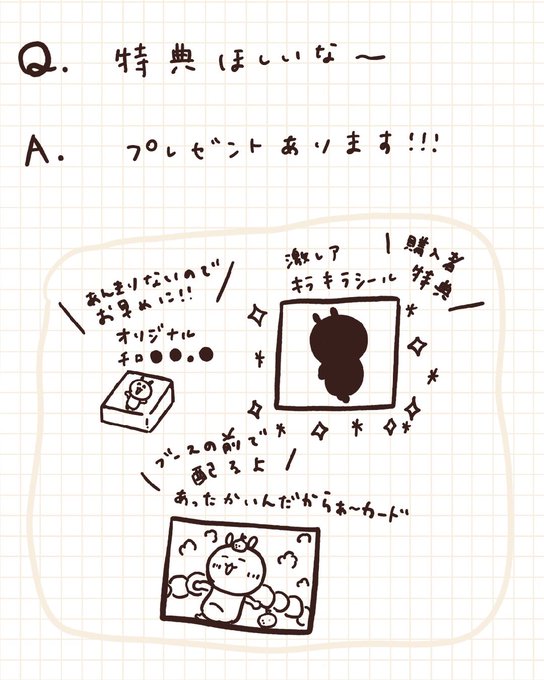 Q. 特典ほしいな〜
A. プレゼントあります!!!
あんまりないので
お早めに!!
オリジナル
チロ●●.●
激レア
キラキラシール
購入者
特典
ブースの前で
配るよ
あったかいんだからぁ〜カード